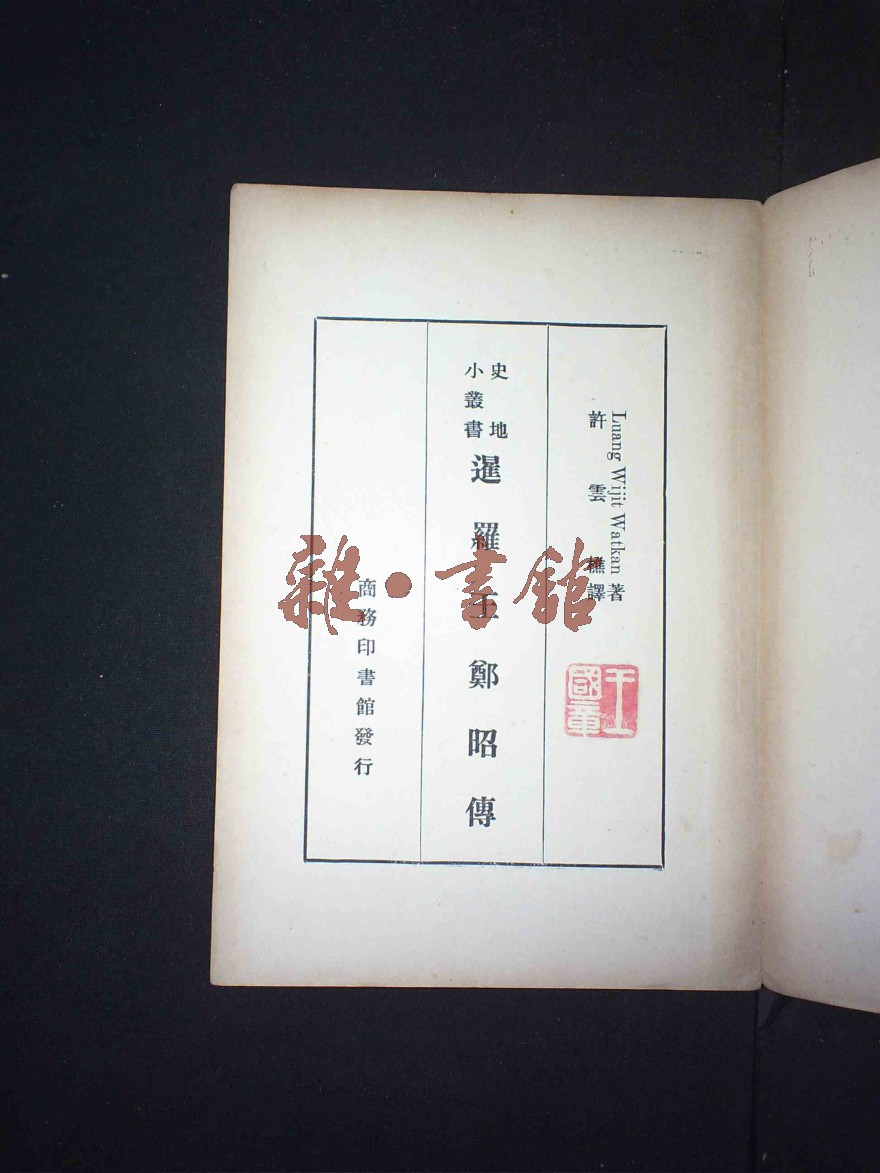 Luang Wijit Watkan 著
許雲樵譯
史地
小叢書
暹羅王鄭昭傳
商務印書館發行
雜·書館